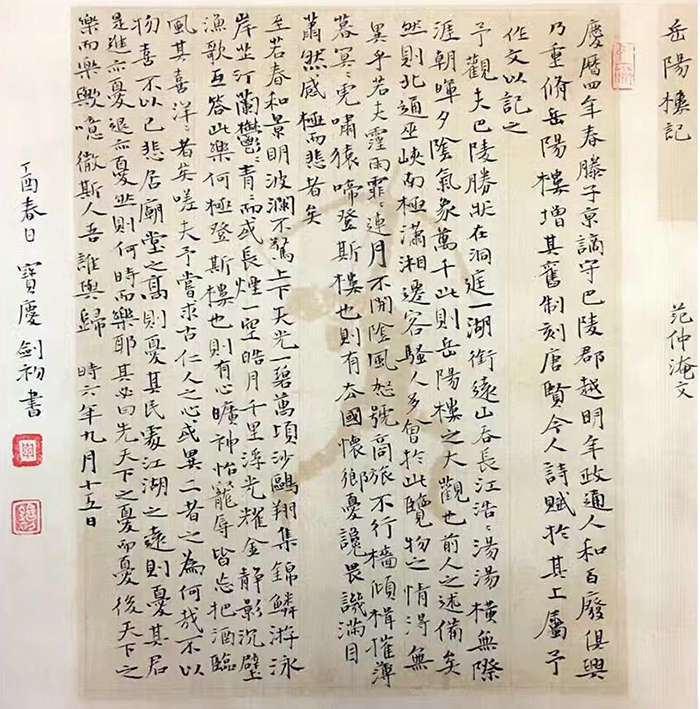 岳陽樓記
范仲淹文
慶曆四年春滕子京謫守巴陵郡越明年政通人和百廢俱興
乃重脩岳陽樓增其舊制刻唐賢今人詩賦於其上屬予
作文以記之
予觀夫巴陵勝狀在洞庭一湖銜遠山吞長江浩〻湯湯橫無際
涯朝暉夕陰氣象萬千此則岳陽樓之大觀也前人之述備矣
然則北通巫峽南極瀟湘遷客騷人多會於此覽物之情得無
異乎若夫霪雨霏〻連月不開陰風怒號商旅不行檣傾楫摧薄
暮冥〻虎嘯猿啼登斯樓也則有去國懷鄉憂讒畏譏滿目
蕭然感極而悲者矣
至若春和景明波瀾不驚上下天光一碧萬頃沙鷗翔集錦鱗游泳
岸芷汀蘭鬱〻青〻而或長煙一空皓月千里浮光耀金靜影沉璧
漁歌互答此樂何極登斯樓也則有心曠神怡寵辱皆忘把酒臨
風其喜洋〻者矣嗟夫予嘗求古仁人之心或異二者之為何哉不以
物喜不以己悲居廟堂之高則憂其民處江湖之遠則憂其君
是進亦憂退亦憂然則何時而樂耶其必曰先天下之憂而憂後天下之
樂而樂歟噫微斯人吾誰與歸 時六年九月十五日
丁酉春日 寶慶劍初書